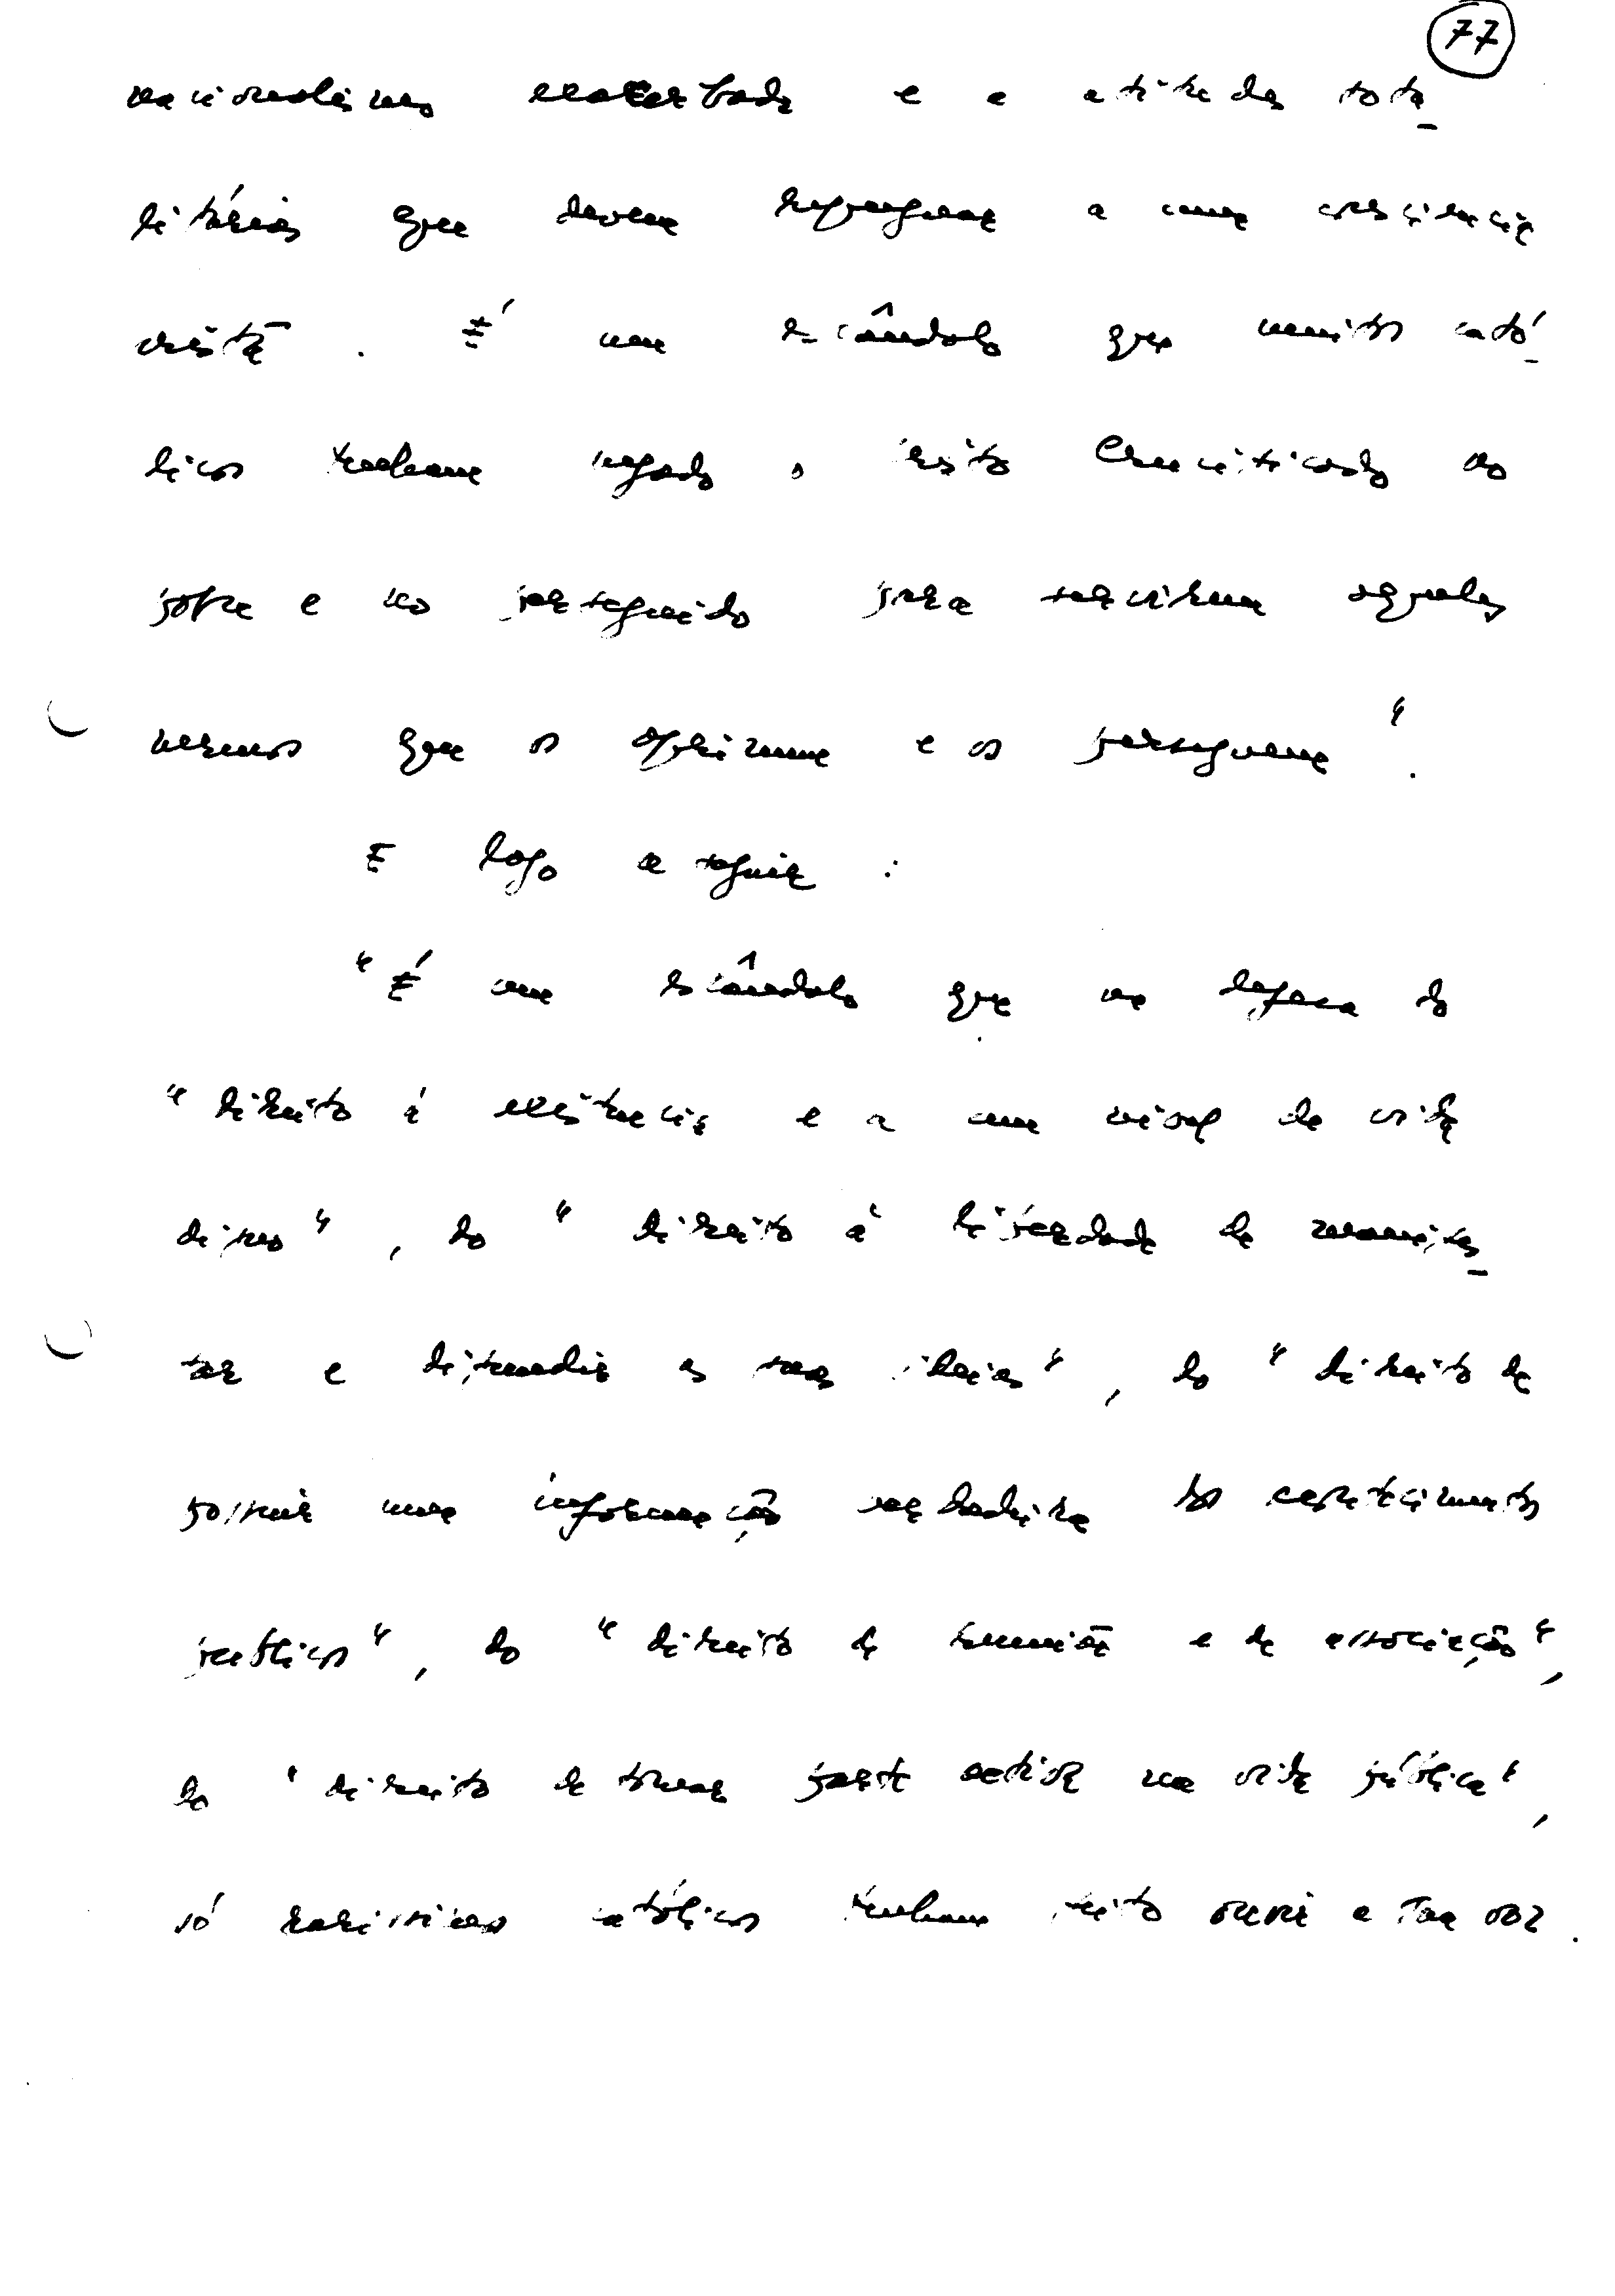 77
nacionalismo exacerbado e a atitudes tota_
litárias que devem repugnar a uma consciência
cristã. É um escândalo que muitos cató_
licos tenham negado o Cristo Crucificado no
pobre e no perseguido para servirem aqueles
mesmos que os oprimem e os perseguem".
E logo a seguir:
"É um escândalo que na defesa do
"direito à existência e a um nível de vida
digno", do "direito à liberdade de manifes_
tar e difundir as suas ideias", do "direito de
possuir uma informação verdadeira dos acontecimentos
públicos", do "direito de reunião e de associação",
do "direito de tomar parte activa na vida pública",
só raríssimos católicos tenham feito ouvir a sua voz.